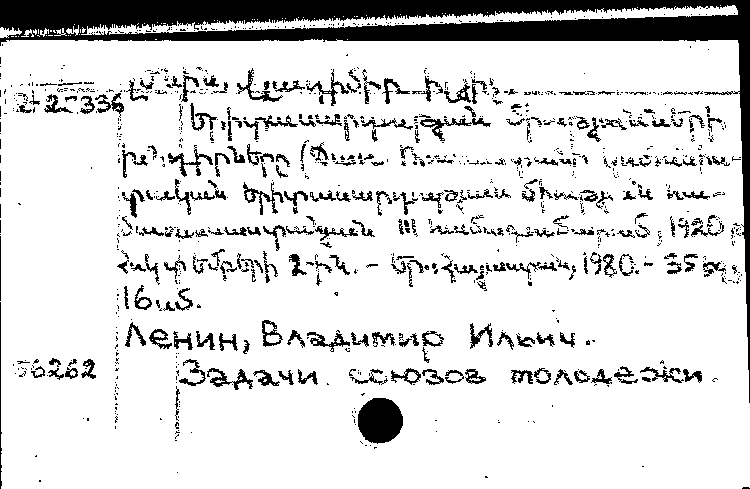 Լենին, Վլադիմիր Իլյիչ.
2-2 336
Երիտասարդության միությունների
խնդիրները (Ճառ Ռուսաստանի կոմունիս-
տական երիտասարդության միության հա-
մառուսաստանյան III համագումարում, 1920 թ
հոկտեմբերի 2-ին. - Եր., Հայաստան, 1980.- 35 էջ,
16սմ.
Ленин, Владимир Ильич.
56262 Задачи союзов молодежи.